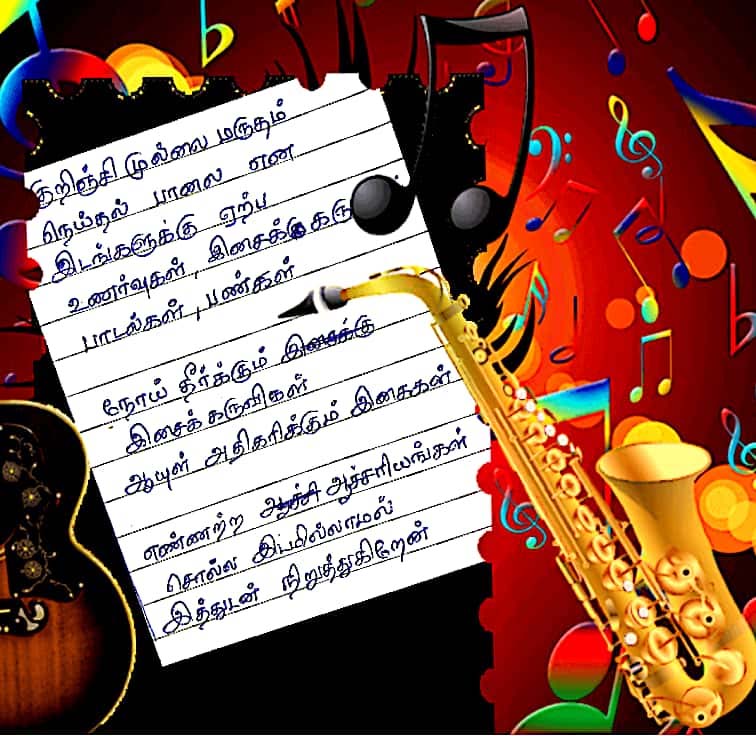 குறிஞ்சி முல்லை மருதம்
நெய்தல் பாலை என
இடங்களுக்கு ஏற்ப
உணர்வுகள், இசைக்கரு
பாடல்கள், பண்கள்
நோய் தீர்க்கும் இசைக்கு
இசைக் கருவிகள்
ஆயுள் அதிகரிக்கும் இசைகள்
எண்ணற்ற ஆச்சி ஆச்சரியங்கள்
சொல்ல இடமில்லாமல்
இத்துடன் நிறுத்துகிறேன்